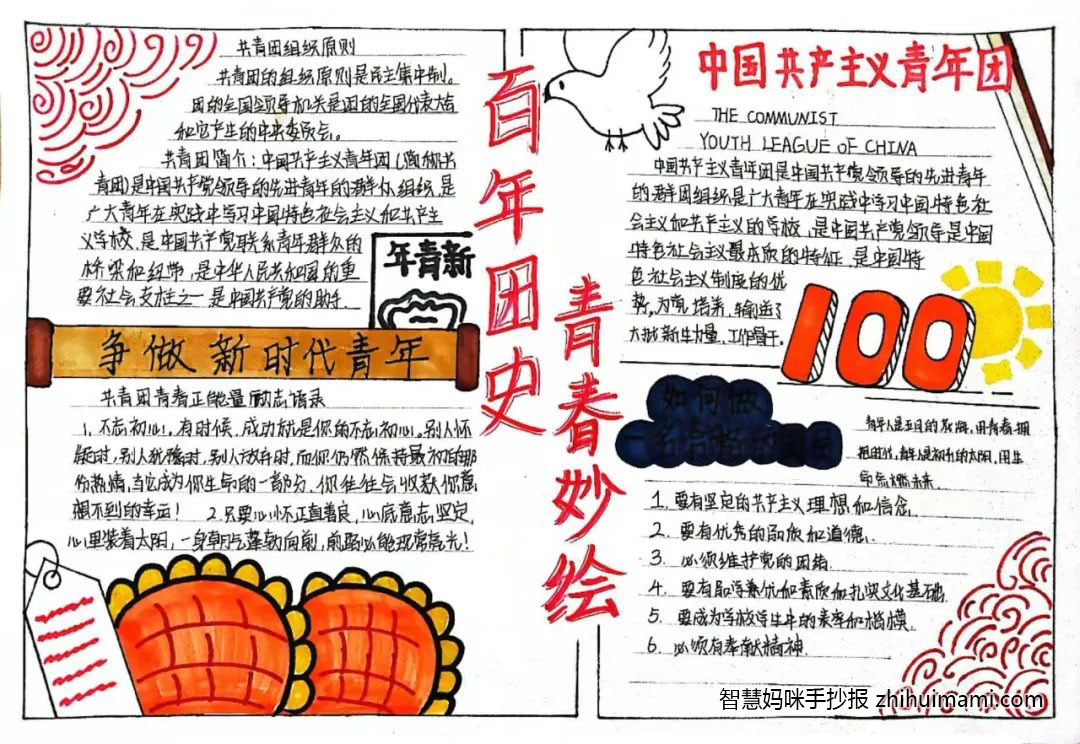 共青团组织原则
共青团的组织原则是民主集中制。
团的全国领导机关是团的全国代表大会
和它产生的中央委员会。
共青团简介:中国共产主义青年团(简称共
青团)是中国共产党领导的先进青年的群众组织,是
广大青年在实践中学习中国特色社会主义和共产主
义学校,是中国共产党联系青年群众的
桥梁和纽带,是中华人民共和国的重
要社会支柱之一,是中国共产党的助手.
年青新
争做新时代青年
共青团青春正能量励志语录
1. 不忘初心!有时候,成功就是你的不忘初心,别人怀
疑时,别人犹豫时,别人放弃时,而你仍然保持最初的那
份热情,当它成为你生命的一部分,你往往会收获你意
想不到的幸运! 2.只要心怀正直善良,心底意志坚定,
心里装着太阳,一身朝气蓬勃向前,前路必能现常亮光!
百年团史
青春妙绘
中国共产主义青年团
THE COMMUNIST
YOUTH LEAGUE OF CHINA
中国共产主义青年团是中国共产党领导的先进青年
的群团组织是广大青年在实践中学习中国特色社
会主义和共产主义的学校,是中国共产党领导是中国
特色社会主义最本质的特征,是中国特
色社会主义制度的优
势,为党培养、输送了
大批新生力量、工作骨干.
100
如何做
一名合格的
青年人是五月的花海,用青春拥
抱时代,青年人是初升的太阳,用生
命点燃未来.
1. 要有坚定的共产主义理想和信念.
2. 要有优秀的品质和道德.
3. 必须维护党的团结.
4. 要有品学兼优和素质和扎实文化基础.
5. 要成为学校学生中的表率和楷模.
6. 必须有奉献精神.
智慧妈咪手抄报 zhihuimami.com